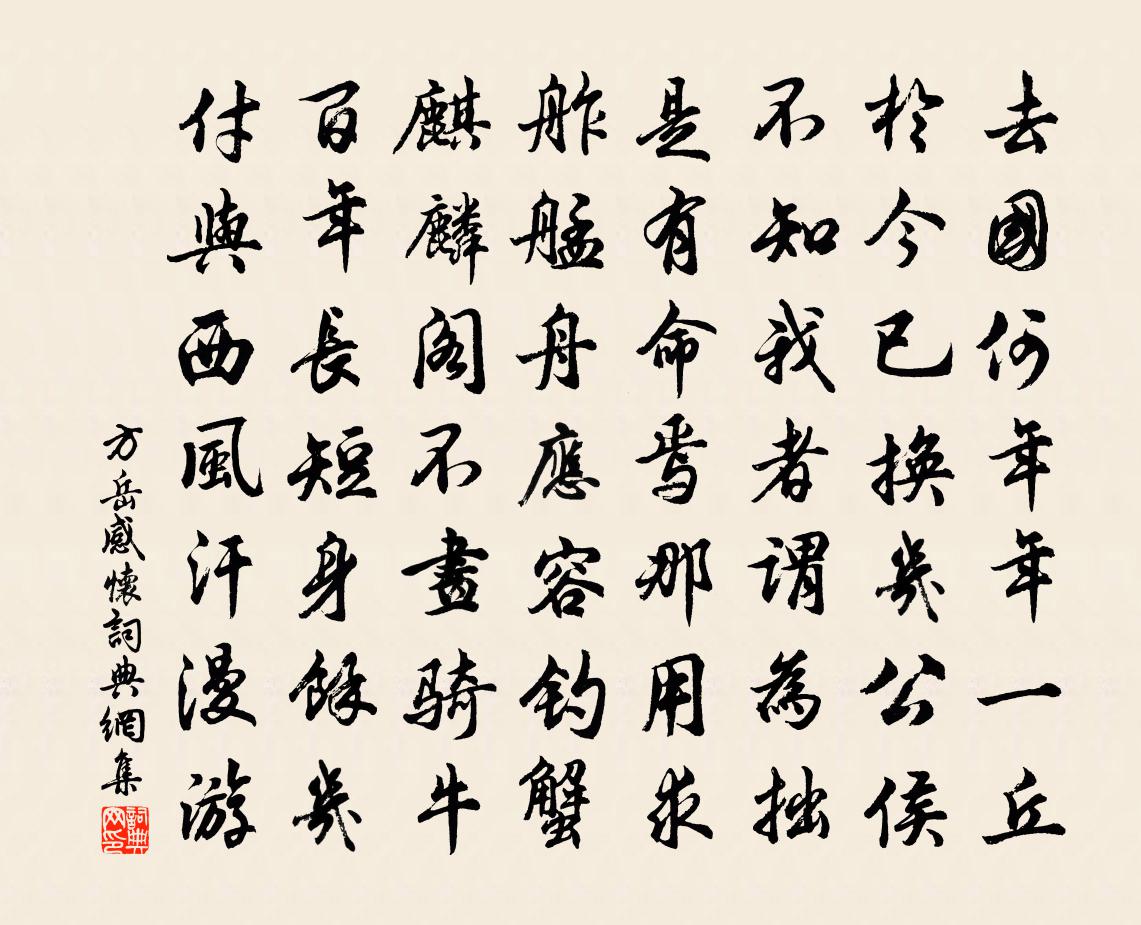 去國何年年一丘
於今已換幾公侯
不知我者謂為拙
是有命焉那用求
舴艋舟應容釣蟹
麒麟閣不畫騎牛
百年長短身餘幾
付與西風汗漫游
方岳感懷詞典網集
詞典网印